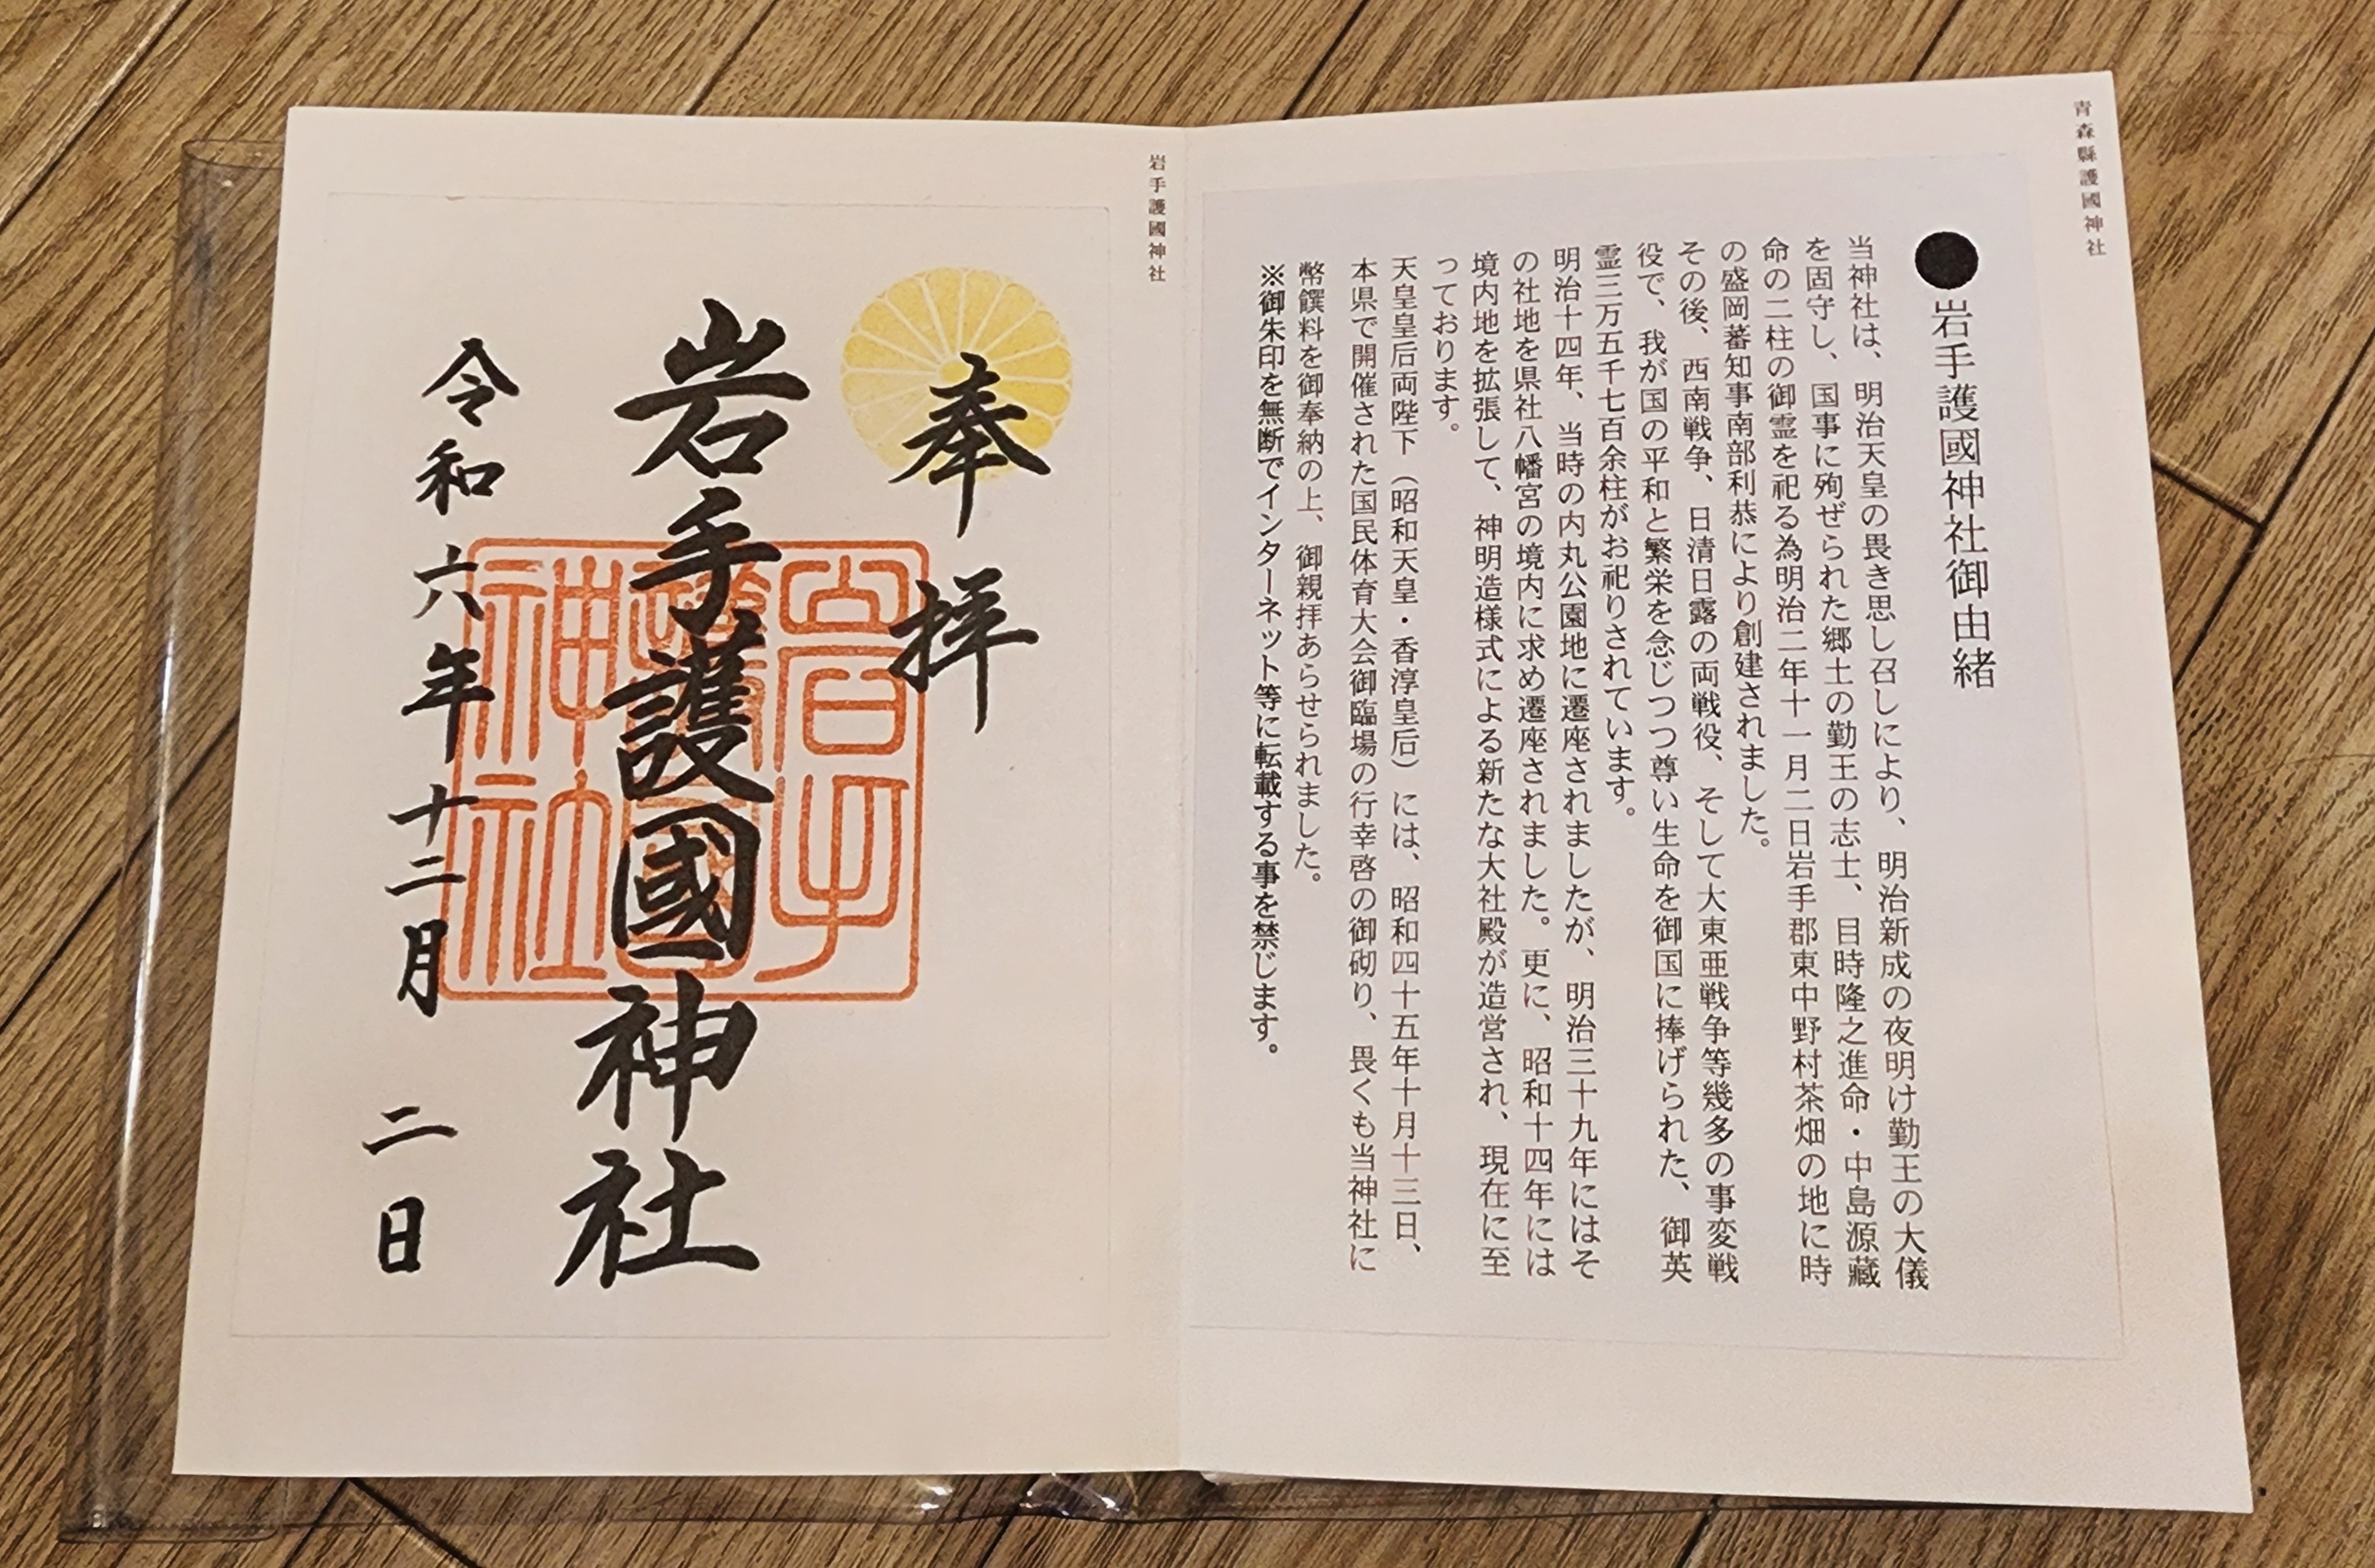 青森縣護國神社
●岩手護國神社御由緒
当神社は、明治天皇の畏き思し召しにより、明治新成の夜明け勤王の大儀
を固守し、国事に殉ぜられた郷土の勤王の志士、目時隆之進命・中島源蔵
命の二柱の御霊を祀る為明治二年十一月二日岩手郡東中野村茶畑の地に時
の盛岡蕃知事南部利恭により創建されました。
その後、西南戦争、日清日露の両戦役、そして大東亜戦争等幾多の事変戦
役で、我が国の平和と繁栄を念じつつ尊い生命を御国に捧げられた、御英
霊三万五千七百余柱がお祀りされています。
明治十四年、当時の内丸公園地に遷座されましたが、明治三十九年にはそ
の社地を県社八幡宮の境内に求め遷座されました。更に、昭和十四年には
境内地を拡張して、神明造様式による新たな大社殿が造営され、現在に至
っております。
天皇皇后両陛下（昭和天皇・香淳皇后）には、昭和四十五年十月十三日、
本県で開催された国民体育大会御臨場の行幸啓の御砌り、畏くも当神社に
幣饌料を御奉納の上、御親拝あらせられました。
※御朱印を無断でインターネット等に転載する事を禁じます。
岩手護國神社
奉拝
岩手護國神社
令和六年十二月二日
岩手
護國
神社